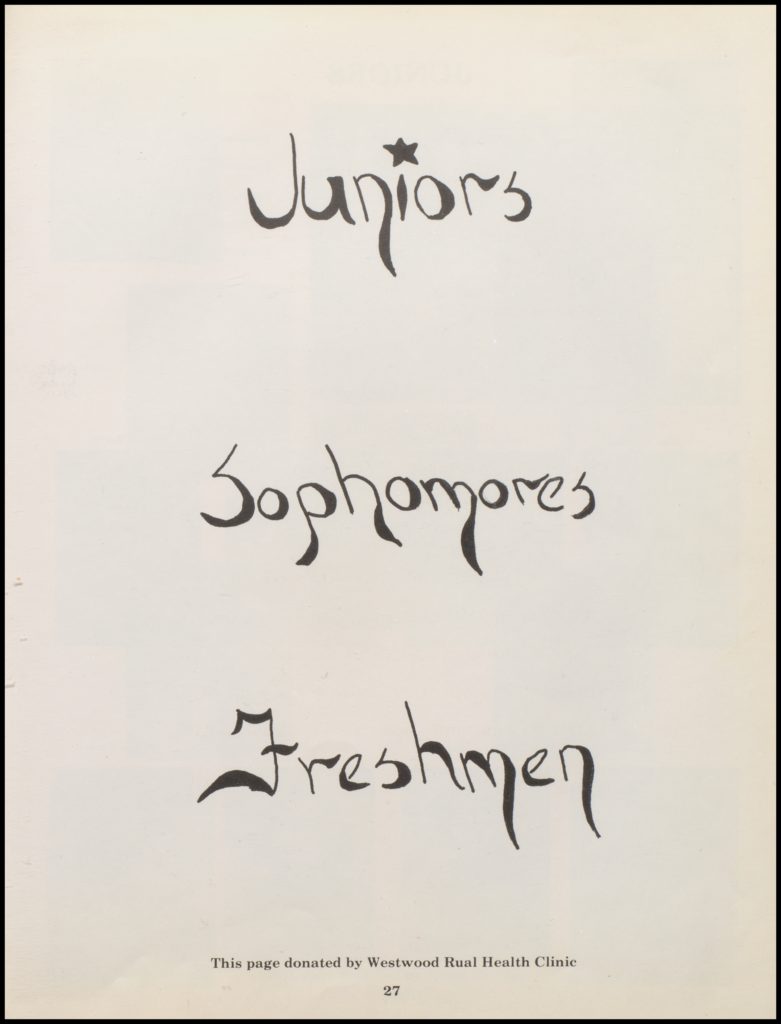 Juniors
Sophomores
Freshmen
This page donated by Westwood Rual Health Clinic
27